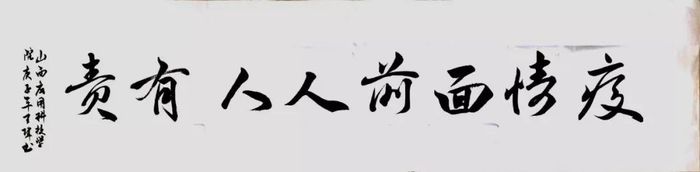 疫情面前人人有责
山西应用科技学
院庚子年
书